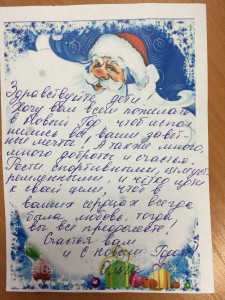 Здравствуйте, дети!
Хочу вам всем пожелать
в Новом Году, чтоб испол-
нились все ваши завет-
ные мечты! А также много,
много доброты и счастья.
Расти спортивными, целеуст-
ремленными и чётко идти
к своей цели, чтоб в
ваших сердцах всегда
была любовь, тогда
вы все преодолеете!
Счастья вам
и с Новым Годом!